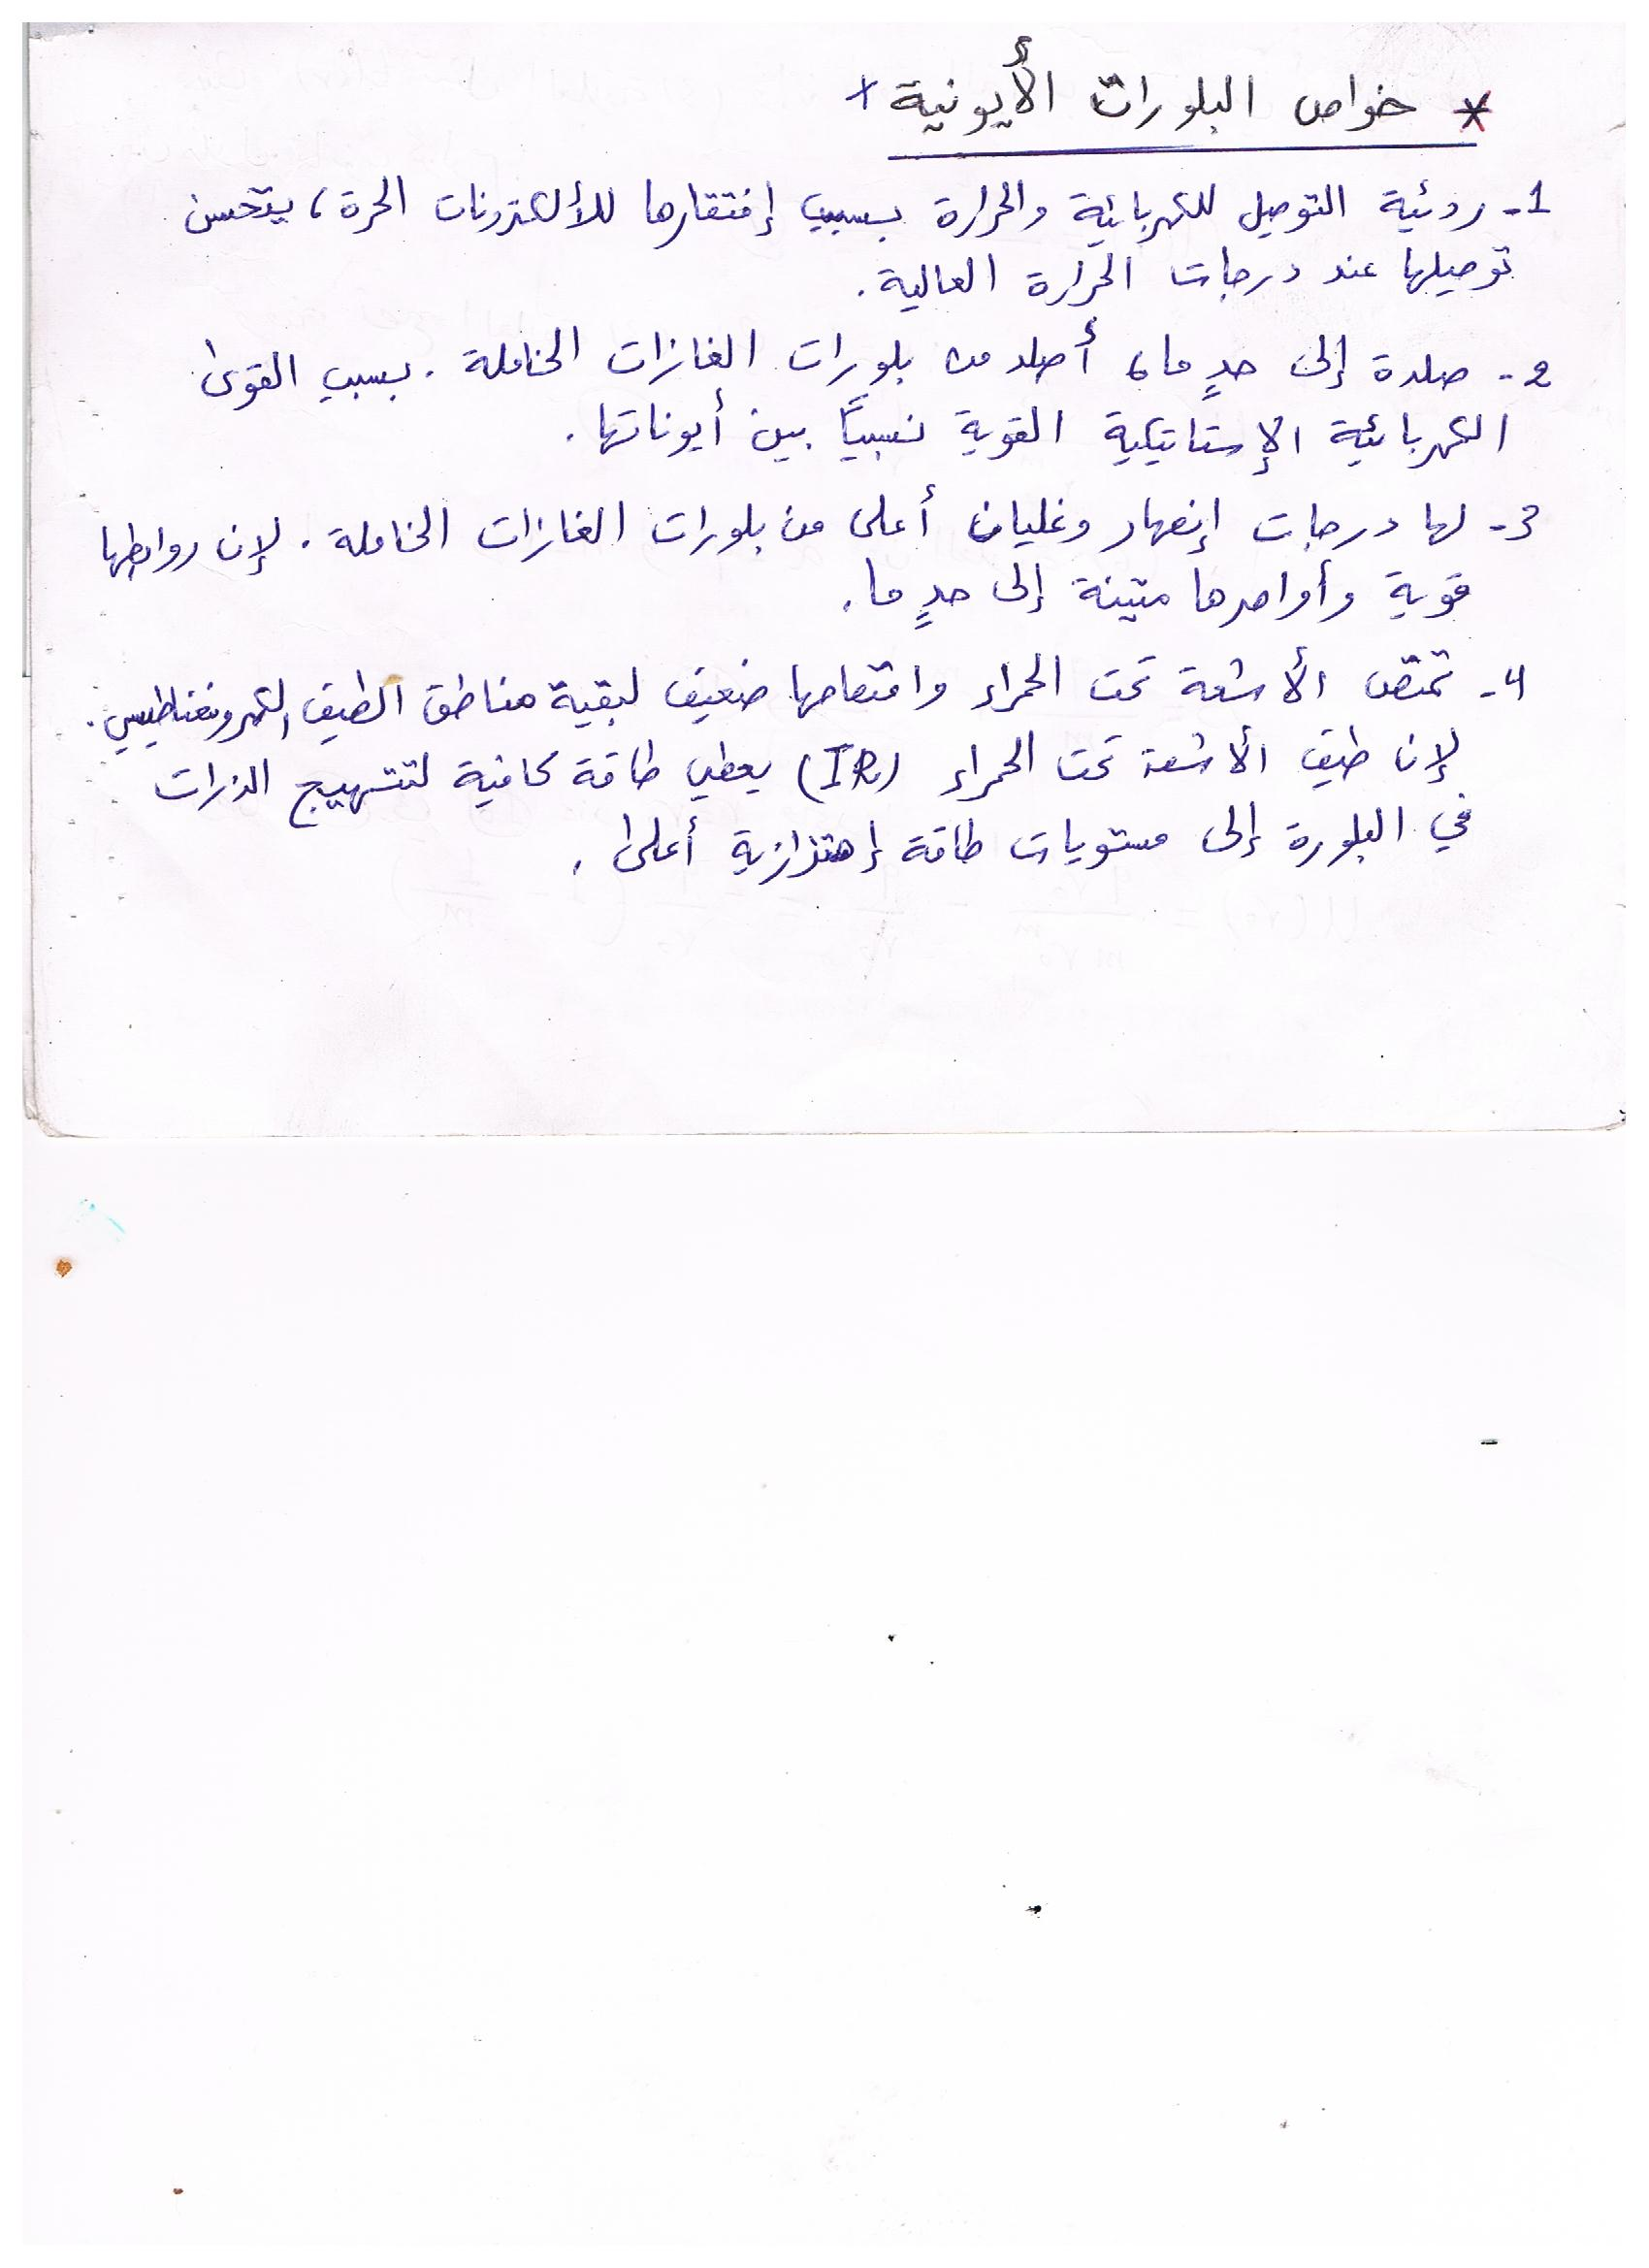 * خواص البلورات الأيونية *
1- ردئية التوصيل للكهربائية والحرارة بسبب إفتقارها للألكترونات الحرة، يتحسن
توصيلها عند درجات الحرارة العالية.
2- صلدة إلى حدٍ ما، أصلد من بلورات الغازات الخاملة. بسبب القوى
الكهربائية الإستاتيكية القوية نسبياً بين أيوناتها.
3- لها درجات إنصهار وغليان أعلى من بلورات الغازات الخاملة. لإن روابطها
قوية وأواصرها متينة إلى حدٍ ما.
4- تمتص الأشعة تحت الحمراء وامتصاصها ضعيف لبقية مناطق الطيف الكهرومغناطيسي.
لإن طيف الأشعة تحت الحمراء (IR) يعطي طاقة كافية لتتهيج الذرات
في البلورة إلى مستويات طاقة إهتزازية أعلى.